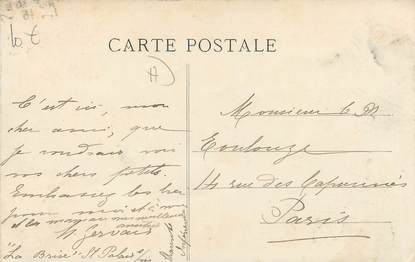 10 €
CARTE POSTALE
C'est ici, mon
cher ami, que
je voudrais voir
vos chers petits.
Embrassez les bien
pour moi et à vous
mes meilleures
amitiés
St Gervais
"La Brise" St Palais s/m
Monsieur le Dr
Toulouze
14 rue des Capucines
Paris